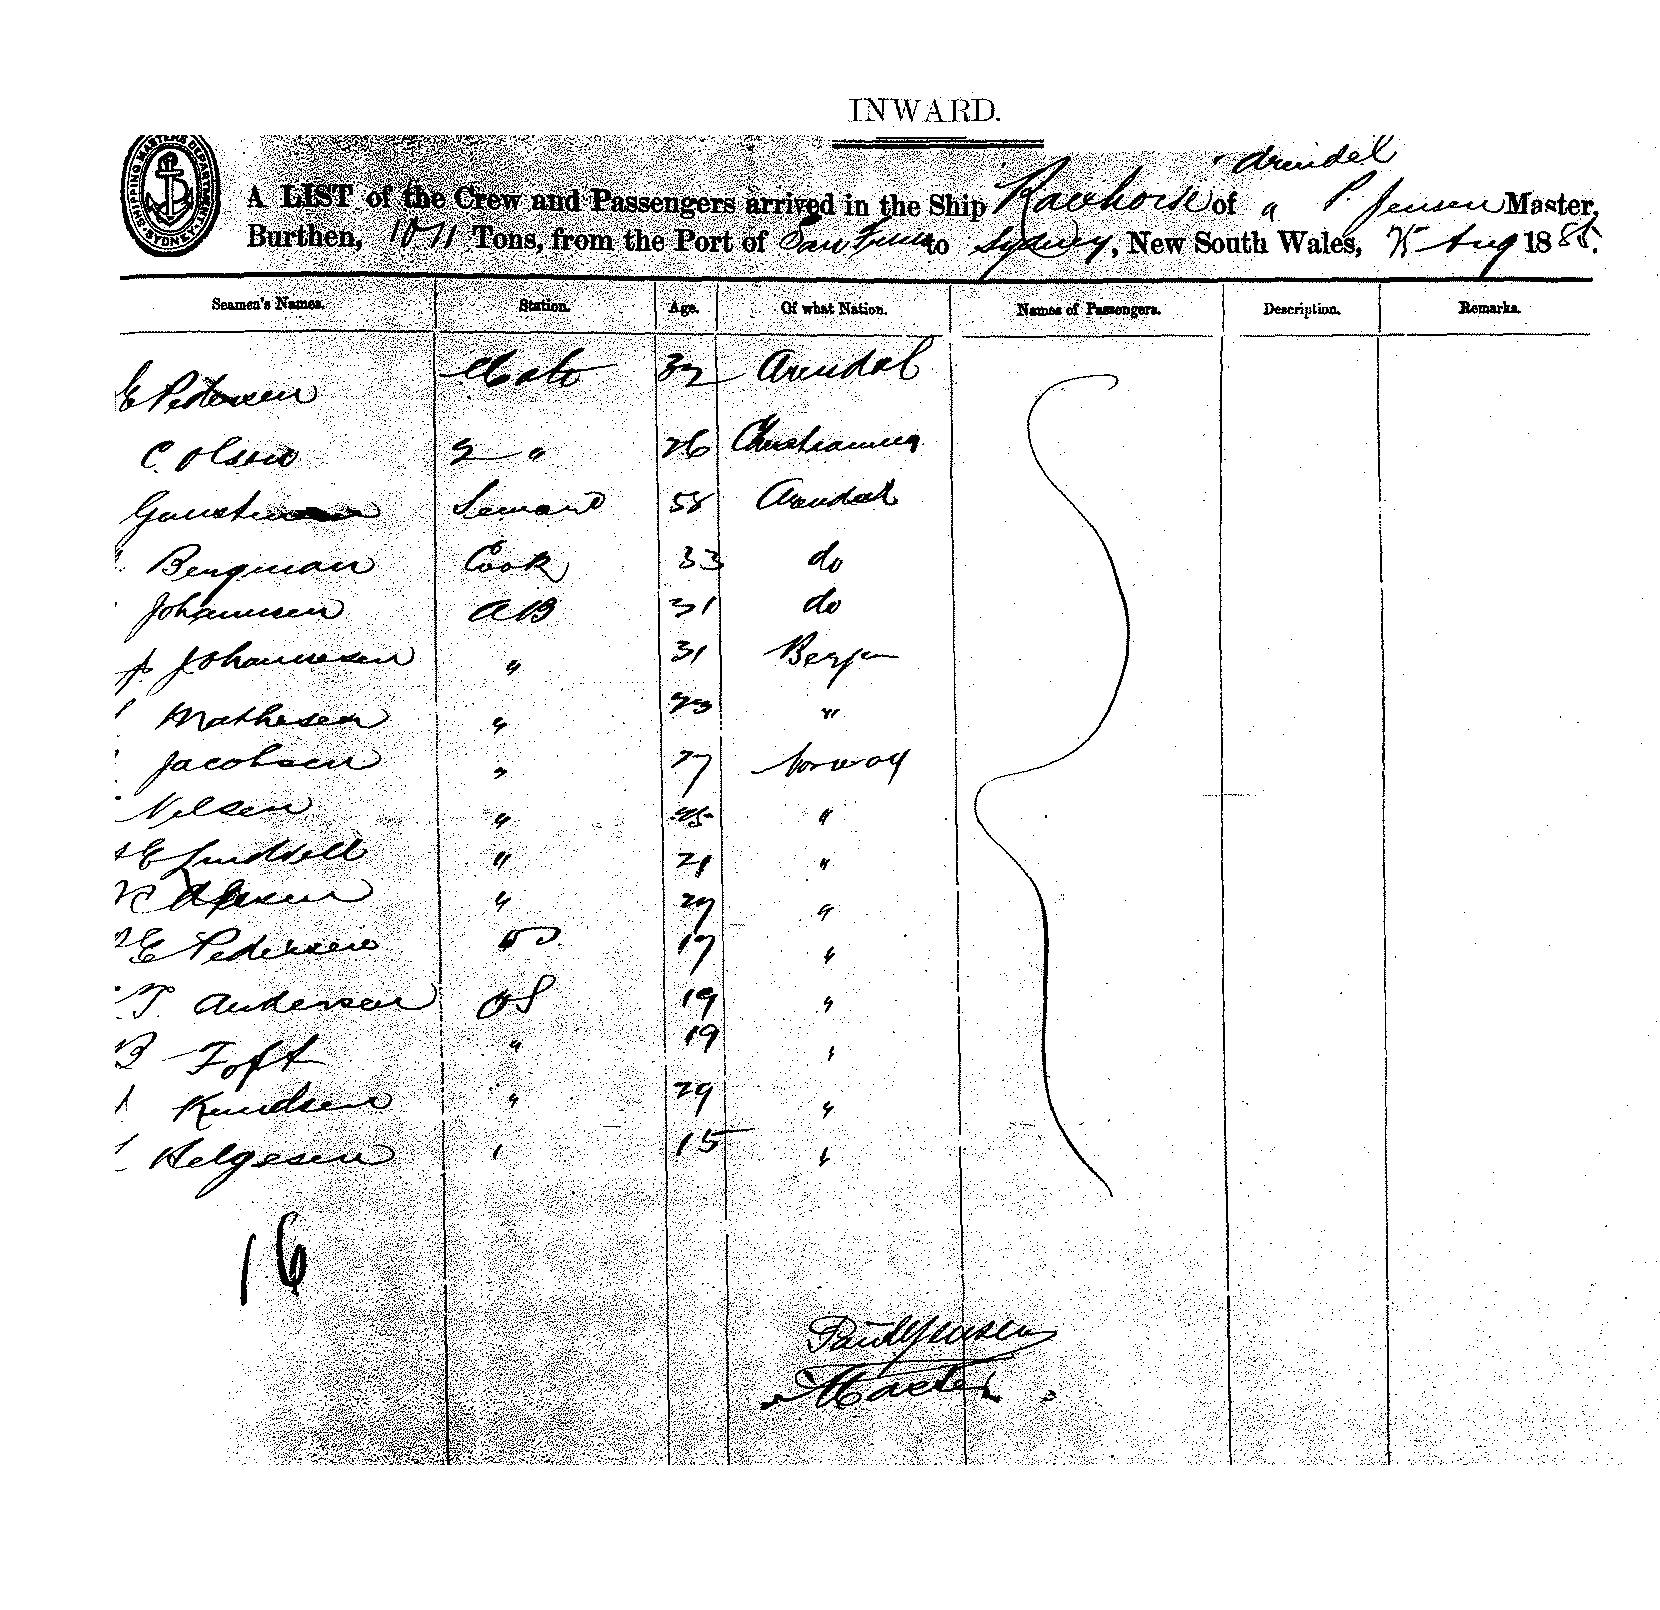 INWARD.
SHIPPING MASTERS DEPARTMENT SYDNEY
Arendel
A LIST of the Crew and Passengers arrived in the Ship of " P. Jensen Master,
Burthen, 1071 Tons, from the Port of San to Sydney, New South Wales, 25 Aug 1885.
Seamen's Names. Station. Age. Of what Nation. Names of Passengers. Description. Remarks.
E Pedersen Mate 32 Arendal
C. Olsen 2 " 26 Christiania
58 Arendal
Bergman Cook 33 do
Johannsen AB 31 do
Johannesen " 31 Bergen
Mathesen " 23 "
Jacobsen " 27 Norway
Nelsen " 25 "
E Lindvell " 21 "
" 27 "
E Pedersen 17 "
T. Andersen OS 19 "
B Toft " 19 "
Knudsen " 29 "
Helgesen " 15 "
16
Paul Jensen
Master